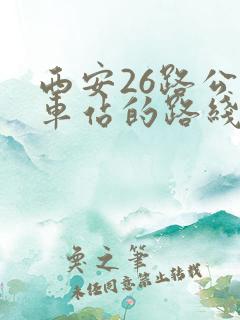 西安26路公
車佔的路綫
奐之筆
未经同意禁止转载